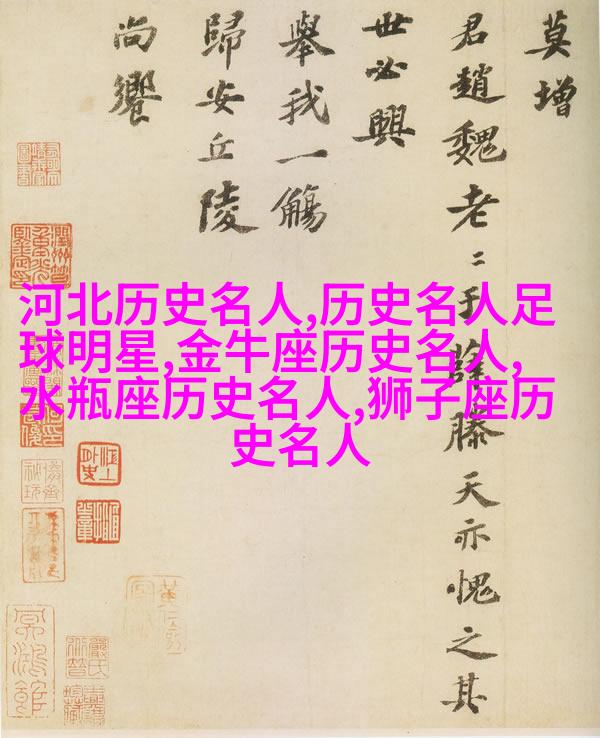 河北历史名人,历史名人足
球明星,金牛座历史名人,
水瓶座历史名人,狮子座历
史名人
莫增
君趙魏老〻于薛滕天亦愧之其
世必興
舉我一觴
歸安丘陵
尚饗